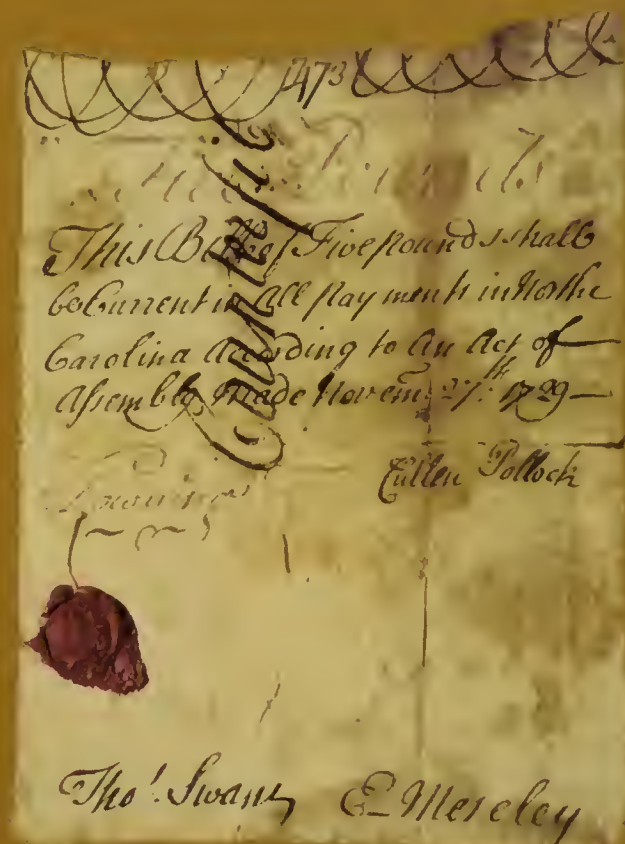 1473
Pounds
This Bill of Five pounds shall
be Current in All Payments in North
Carolina According to An Act of
Assembly Made Novem. 27th. 1729
Cullen Pollock
Tho! Swann
E Moseley
Counterfit